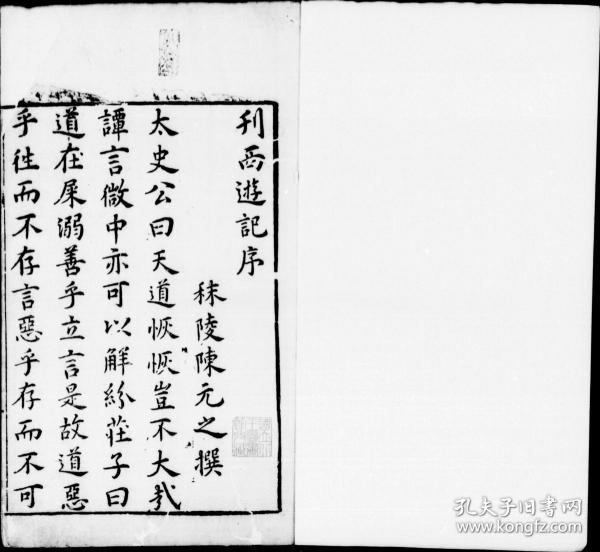 刊西遊記序
秣陵陳元之撰
太史公曰天道恢恢豈不大哉
譚言微中亦可以解紛莊子曰
道在屎溺善乎立言是故道惡
乎徃而不存言惡乎存而不可
孔夫子旧书网
www.kongfz.com